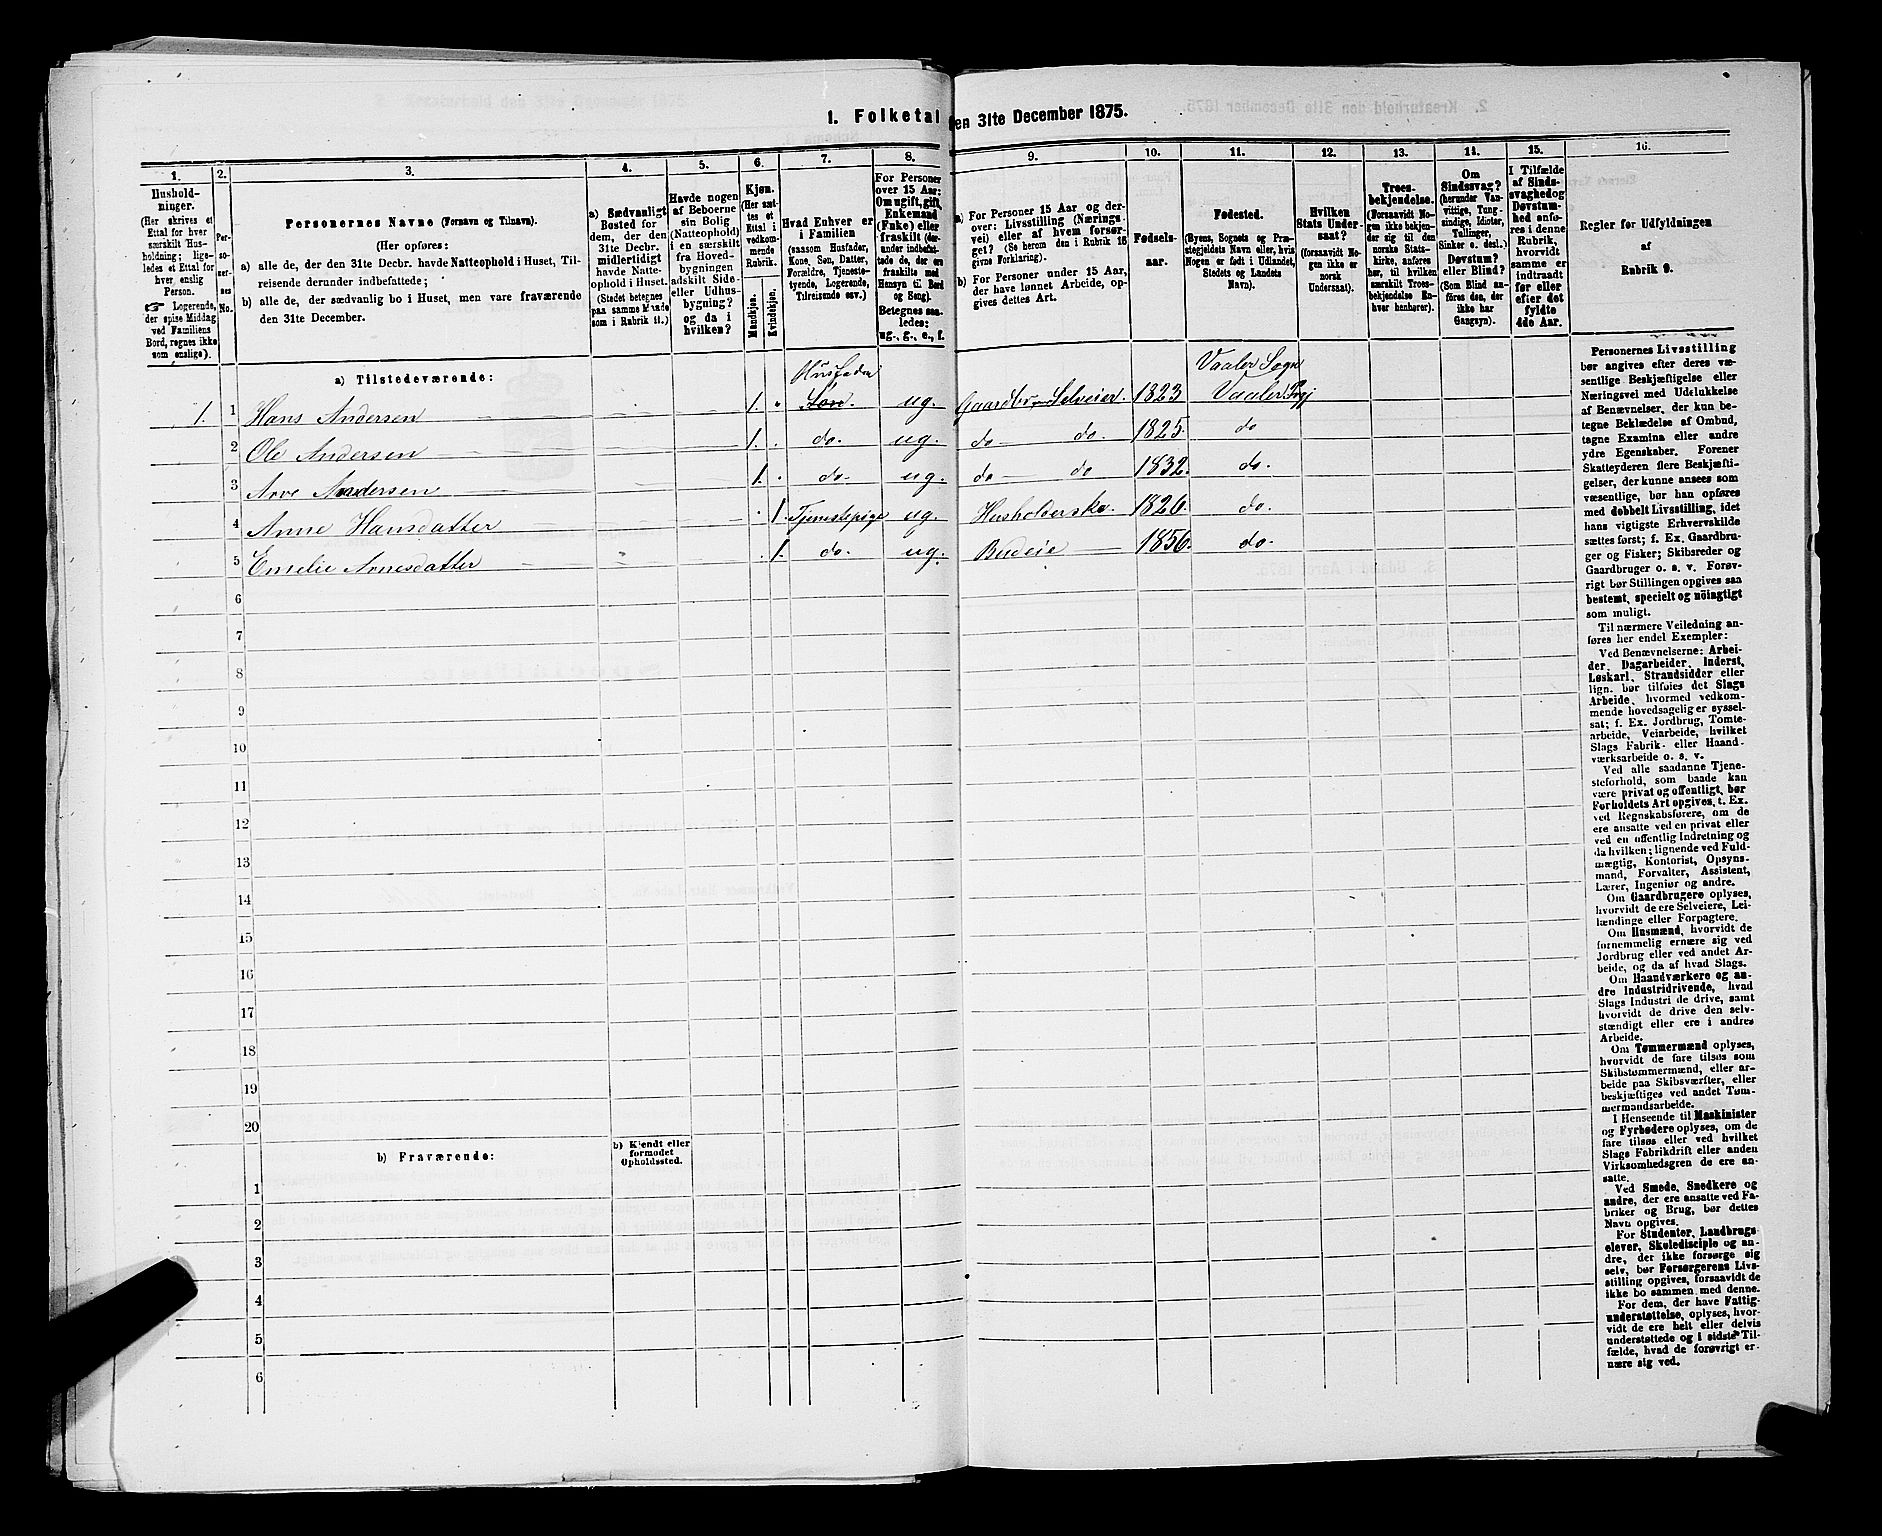 1. Folketal den 31te December 1875.
1.
2.
3.
4.
5.
6.
7.
8.
9.
10.
11.
12.
13.
14.
15.
16.
Hushold-
ninger.
(Her skrives et
Ettal for hver
særskilt Hus-
holdning; lige-
ledes et Ettal for
hver enslig
Person.
☞ Logerende,
der spise Middag
ved Familiens
Bord, regnes ikke
som enslige).
Per-
so-
ner-
nes
No.
Personernes Navne (Fornavn og Tilnavn).
(Her opføres:
a) alle de, der den 31te Decbr. havde Natteophold i Huset, Til-
reisende derunder indbefattede;
b) alle de, der sædvanlig bo i Huset, men vare fraværende
den 31te December.
a) Sædvanligt
Bosted for
dem, der den
31te Decbr.
midlertidigt
havde Natte-
ophold i Huset.
(Stedet betegnes
paa samme Maade
som i Rubrik 11.)
Havde nogen
af Beboerne
sin Bolig
(Natteophold)
i en særskilt
fra Hoved-
bygningen
adskilt Side-
eller Udhus-
bygning?
og da i
hvilken?
Kjøn.
(Her sæt-
tes et
Ettal i
vedkom-
mende
Rubrik.
Mandkjøn.
Kvindekjøn.
Hvad Enhver er
i Familien
(saasom Husfader,
Kone, Søn, Datter,
Forældre, Tjeneste-
tyende, Logerende,
Tilreisende osv.)
For Personer
over 15 Aar:
Om ugift, gift,
Enkemand
(Enke) eller
fraskilt (der-
under indbefat-
tede de, der ere
fraskilte med
Hensyn til Bord
og Seng).
Betegnes saa-
ledes:
ug., g., e., f.
a) For Personer 15 Aar og der-
over: Livsstilling (Nærings-
vei) eller af hvem forsør-
get? (Se herom den i Rubrik 16
givne Forklaring).
b) For Personer under 15 Aar,
der have lønnet Arbeide, op-
gives dettes Art.
Fødsels-
aar.
Fødested.
(Byens, Sognets og Præ-
stegjeldets Navn eller, hvis
Nogen er født i Udlandet,
Stedets og Landets
Navn).
Hvilken
Stats Under-
saat?
(forsaavidt No-
gen ikke er
norsk
Undersaat).
Troes-
bekjendelse.
(Forsaavidt No-
gen ikke bekjen-
der sig til den
norske Stats-
kirke, anføres
her, til hvilken
særskilt Troes-
bekjendelse En-
hver henhører).
Om
Sindssvag?
(herunder Van-
vittige, Tung-
sindige, Idioter,
Tullinger,
Sinker o. desl.)
Døvstum?
eller Blind?
(Som Blind an-
føres den, der
ikke har
Gangsyn).
I Tilfælde
af Sinds-
svaghed og
Døvstum-
hed anfø-
res i denne
Rubrik,
hvorvidt
samme er
indtraadt
før eller
efter det
fyldte
4de Aar.
Regler for Udfyldningen
af
Rubrik 9.
a) Tilstedeværende:
Husfader
Vaaler Sogn
1. 1 Hans Andersen 1. Søn. ug. Gaardbr. Selveier. 1823 Vaaler Prgj
2 Ole Andersen 1. do. ug. do do. 1825. do
3 Arve Andersen 1. do. ug. do do 1832. do.
4 Anne Hansdatter 1. Tjenestepige ug. Husholderske. 1826. do.
5 Emelie Arnesdatter 1. do. ug. Budeie 1856. do.
6
7
8
9
10
11
12
13
14
15
16
17
18
19
20
b) Fraværende:
b) Kjendt eller
formodet
Opholdssted.
1
2
3
4
5
6
Personernes Livsstilling
bør angives efter deres væ-
sentlige Beskjæftigelse eller
Næringsvei med Udelukkelse
af Benævnelser, der kun be-
tegne Beklædelse af Ombud,
tagne Examina eller andre
ydre Egenskaber. Forener
Skatteyderen flere Beskjæfti-
gelser, der kunne ansees som
væsentlige, bør han opføres
med dobbelt Livsstilling, idet
hans vigtigste Erhvervskilde
sættes først; f. Ex. Gaardbru-
ger og Fisker; Skibsreder og
Gaardbruger o. s. v. Forøv-
rigt bør Stillingen opgives saa
bestemt, specielt og nöiagtigt
som muligt.
Til nærmere Veiledning an-
føres her endel Exempler:
Ved Benævnelserne: Arbei-
der, Dagarbeider, Inderst,
Løskarl, Strandsidder eller
lign. bør tilføies det Slags
Arbeide, hvormed vedkom-
mende hovedsagelig er syssel-
sat; f. Ex. Jordbrug, Tomte-
arbeide, Veiarbeide, hvilket
Slags Fabrik- eller Haand-
værksarbeide o. s. v.
Ved alle saadanne Tjene-
steforhold, som baade kan
være privat og offentligt, bør
Forholdets Art opgives, t. Ex.
ved Regnskabsførere, om de
ere ansatte ved en privat eller
ved en offentlig Indretning og
da hvilken; lignende ved Fuld-
mægtig, Kontorist, Opsyns-
mand, Forvalter, Assistent,
Lærer, Ingeniør og andre.
Om Gaardbrugere oplyses,
hvorvidt de ere Selveiere, Lei-
lændinge eller Forpagtere.
Om Husmænd, hvorvidt de
fornemmelig ernære sig ved
Jordbrug eller ved andet Ar-
beide, og da af hvad Slags.
Om Haandværkere og an-
dre Industridrivende, hvad
Slags Industri de drive, samt
hvorvidt de drive den selv-
stændigt eller ere i andres
Arbeide.
Om Tømmermænd oplyses,
hvorvidt de fare tilsøs som
Skibstømmermænd, eller ar-
beide paa Skibsværfter, eller
beskjæftiges ved andet Tøm-
mermandsarbeide.
I Henseende til Maskinister
og Fyrbødere oplyses, om de
fare tilsøs eller ved hvilket
Slags Fabrikdrift eller anden
Virksomhedsgren de ere an-
satte.
Ved Smede, Snedkere og
andre, der ere ansatte ved Fa-
briker og Brug, bør dettes
Navn opgives.
For Studenter, Landbrugs-
elever, Skoledisciple og an-
dre, der ikke forsørge sig
selv, bør Forsørgerens Livs-
stilling opgives, forsaavidt de
ikke bo sammen med denne.
For dem, der have Fattig-
understøttelse, oplyses, hvor-
vidt de ere helt eller delvis
understøttede og i sidste Til-
fælde, hvad de forøvrigt er-
nære sig ved.